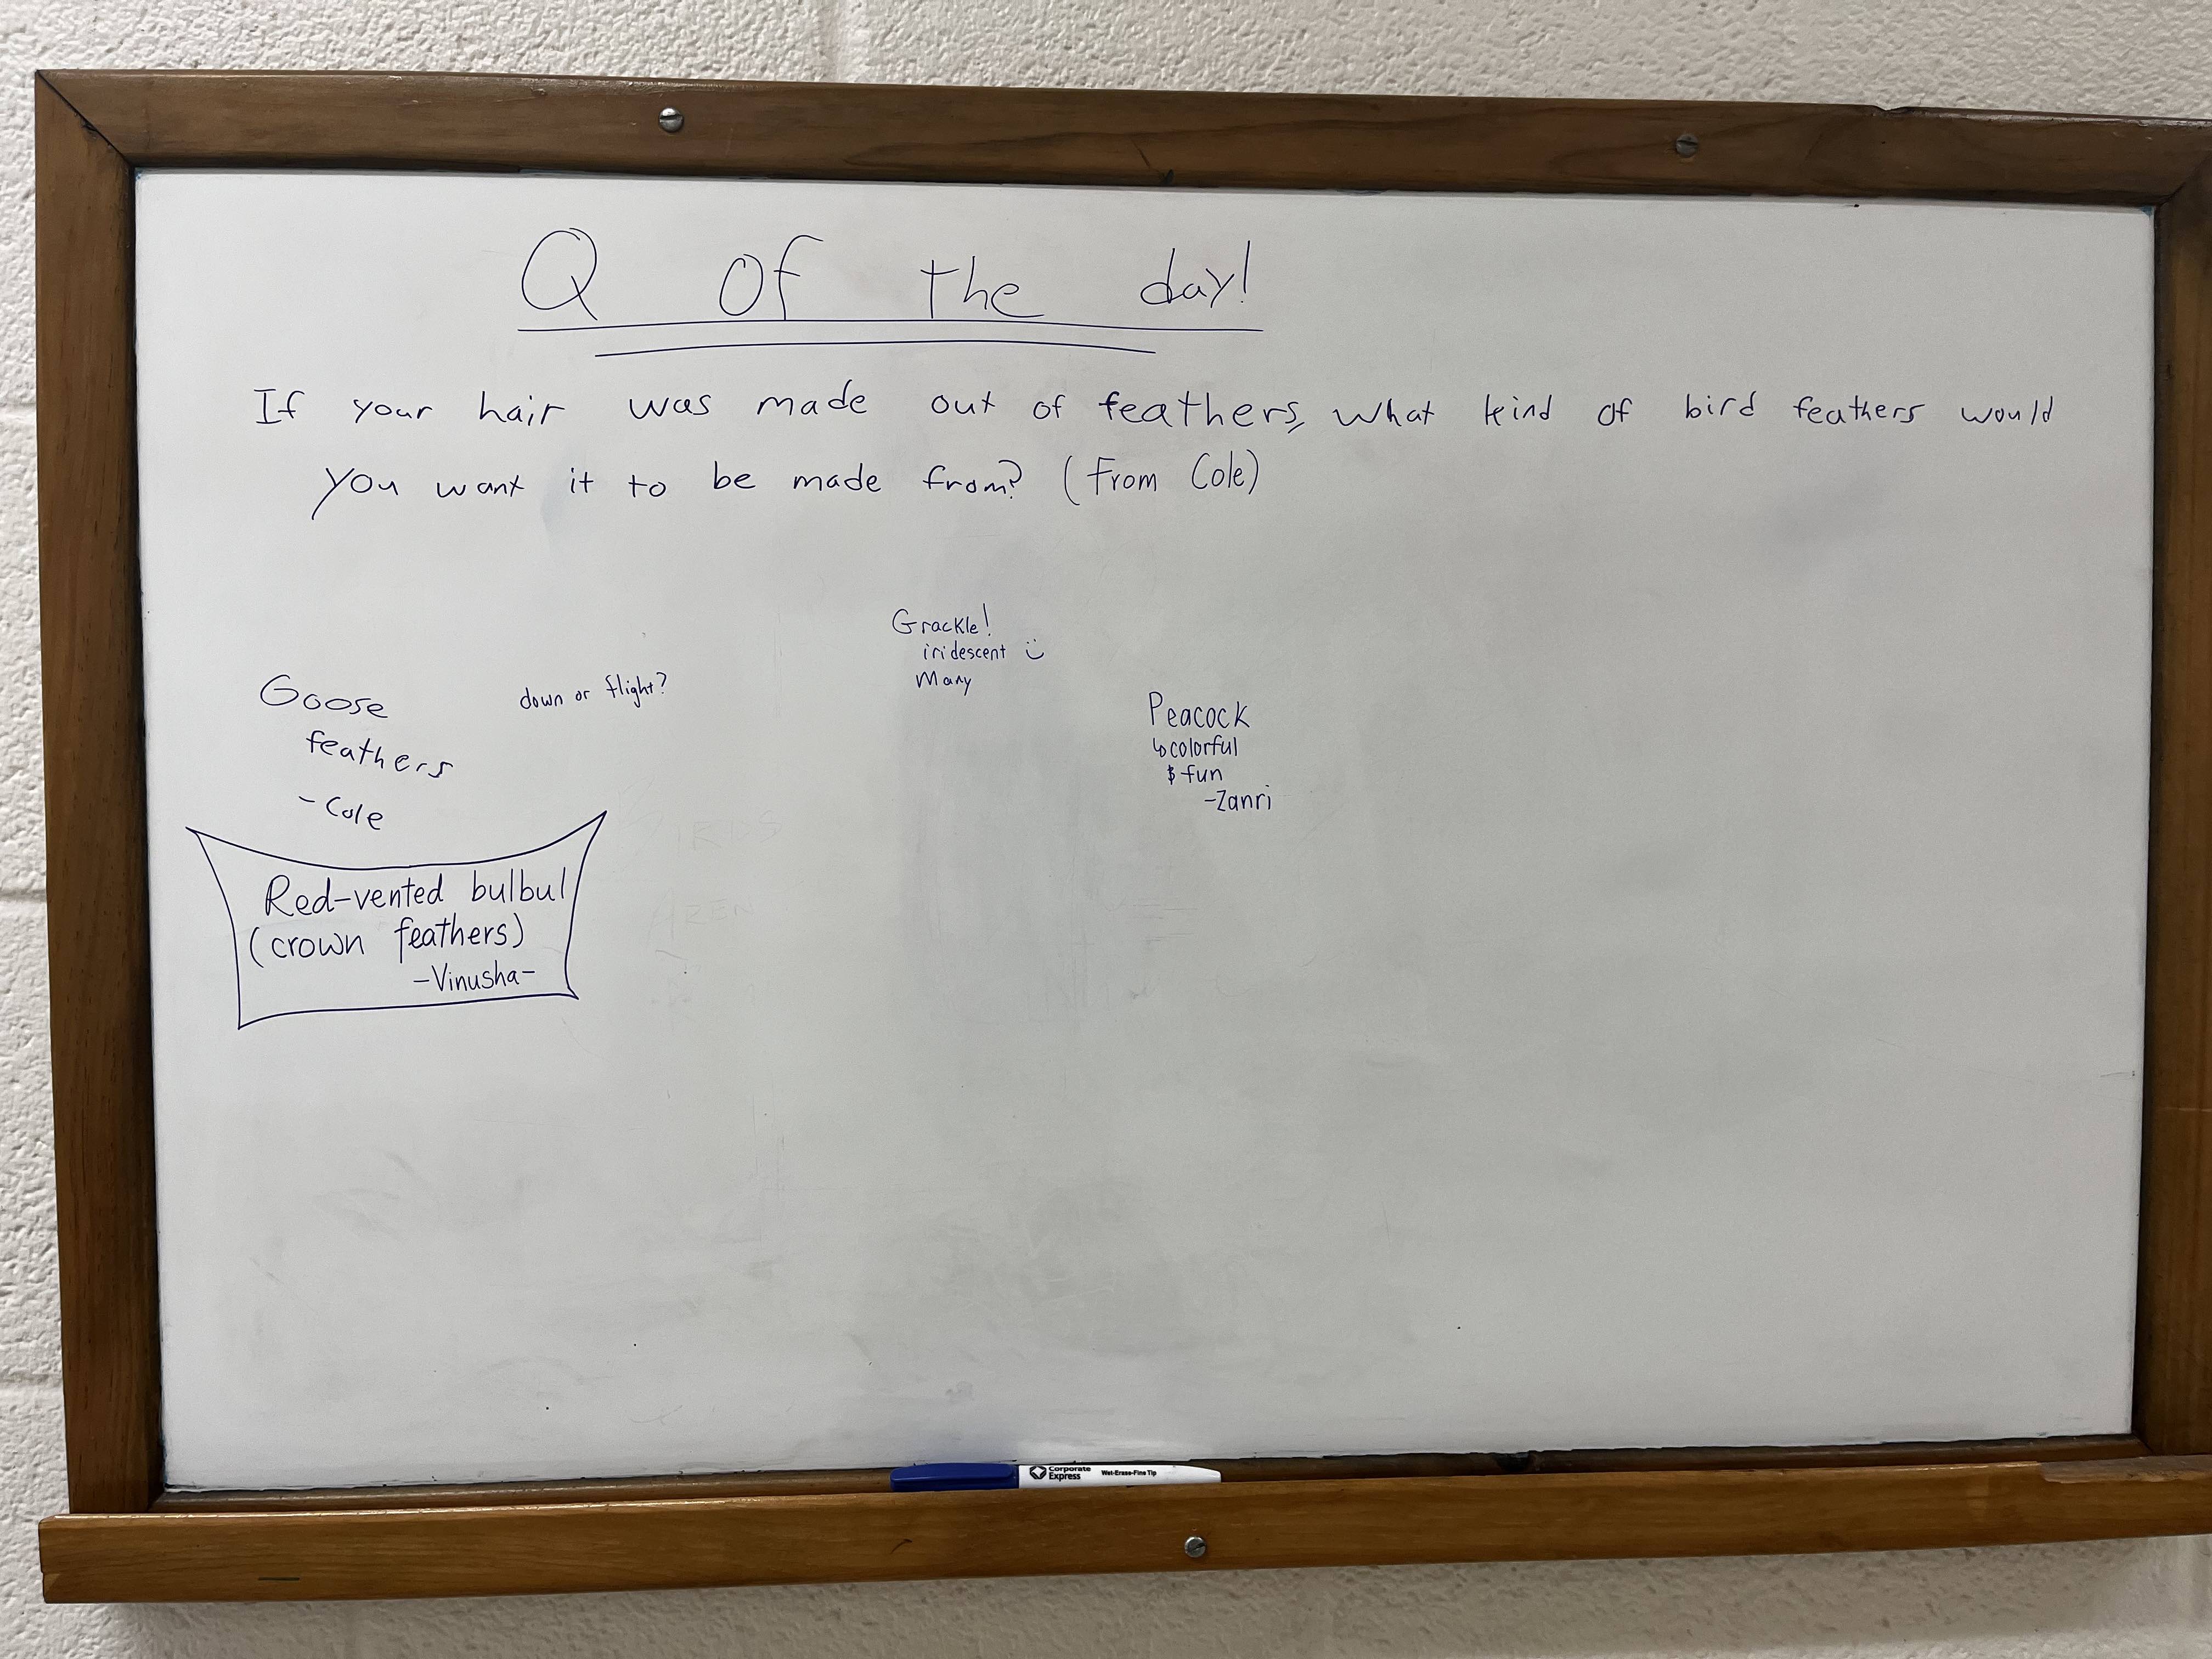 Q Of the day!
If your hair was made out of feathers, what kind of bird feathers would
you want it to be made from? (From Cole)
Grackle!
iridescent
Mary
Goose
feathers
-Cole
down or flight?
Peacock
↳colorful
& fun
-Zanri
Red-vented bulbul
(crown feathers)
-Vinusha-
Corporate
Express
Wet-Erase-Fine Tip